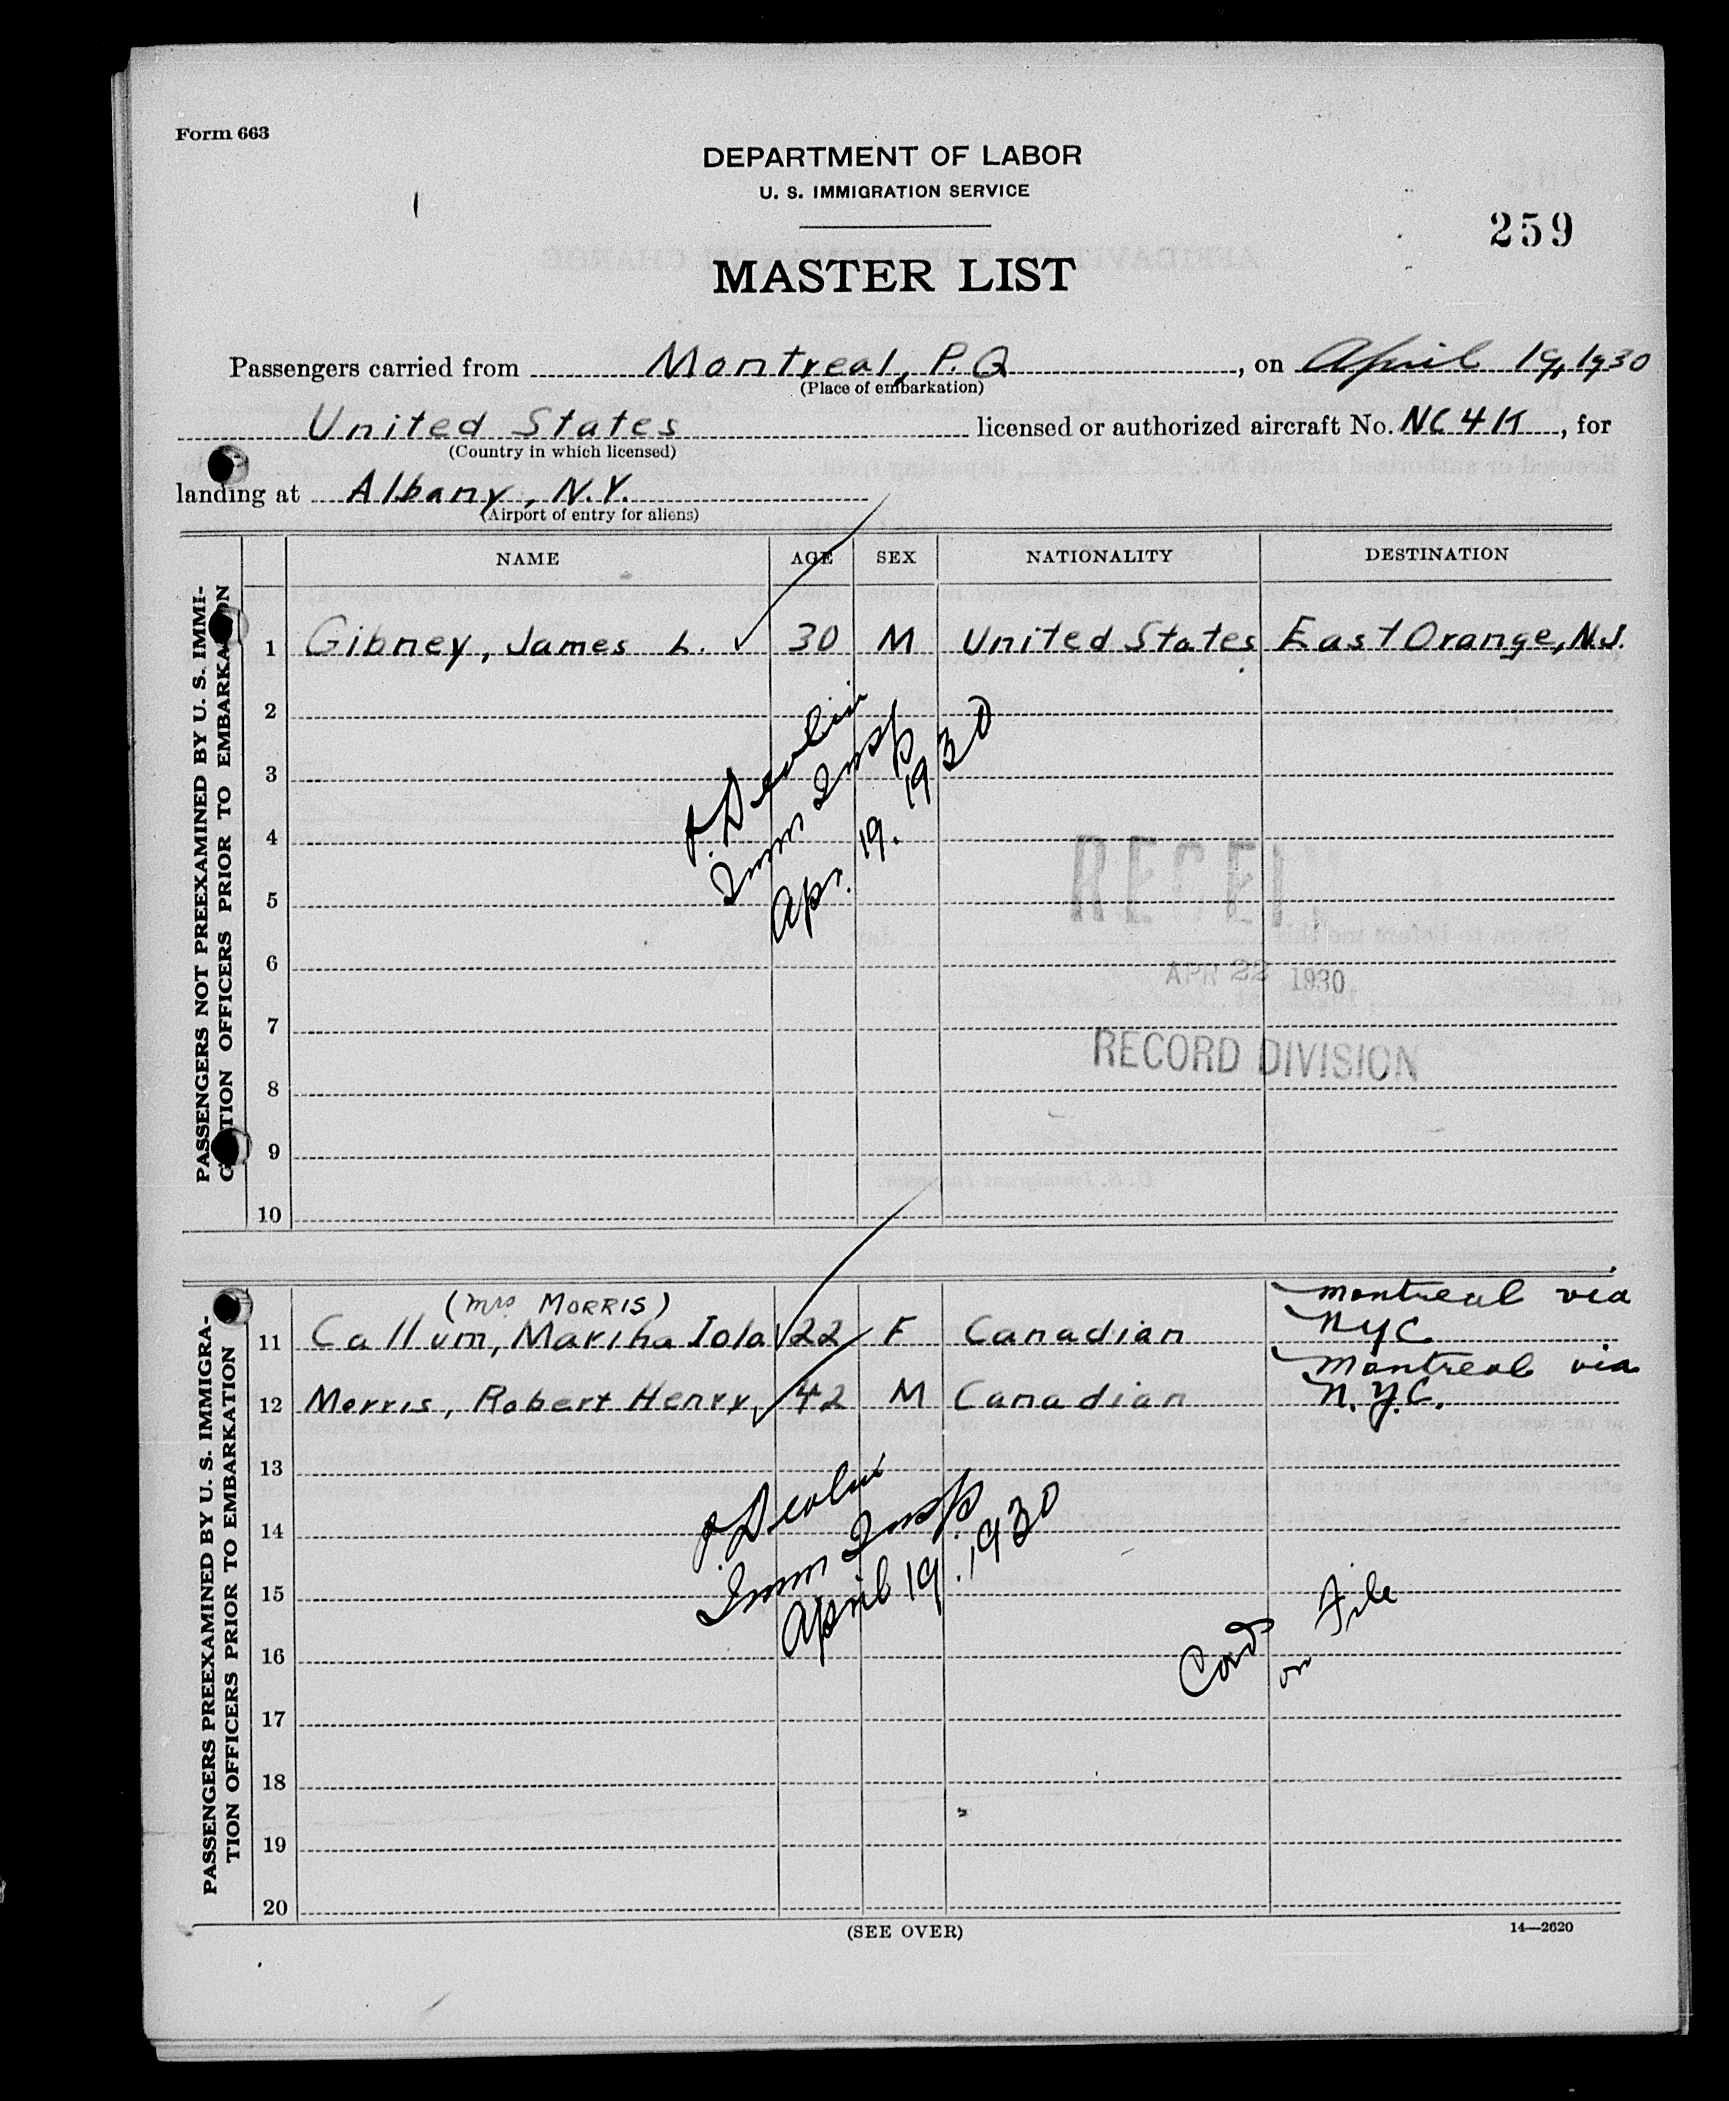 Form 663
DEPARTMENT OF LABOR
U. S. IMMIGRATION SERVICE
259
MASTER LIST
Passengers carried from Montreal, P.Q , on April 19, 1930
United States licensed or authorized aircraft No. NC4K , for
(Place of embarkation)
(Country in which licensed)
landing at Albany, N.Y.
(Airport of entry for aliens)
NAME AGE SEX NATIONALITY DESTINATION
PASSENGERS NOT PREEXAMINED BY U. S. IMMI-
GRATION OFFICERS PRIOR TO EMBARKATION
1 Gibney, James L. 30 M United States East Orange, N.J.
2
3
4
5
6
7
8
9
10
Devlin
Imm Insp
Apr. 19. 1930
APR 22 1930
RECORD DIVISION
PASSENGERS PREEXAMINED BY U. S. IMMIGRA-
TION OFFICERS PRIOR TO EMBARKATION
(Mrs MORRIS)
11 Callum, Martha Iola 22 F Canadian Montreal via NYC
12 Morris, Robert Henry 42 M Canadian Montreal via N.Y.C.
13
14
15
16
17
18
19
20
Devlin
Imm Insp
April 19. 1930
Card on File
(SEE OVER)
14—2620